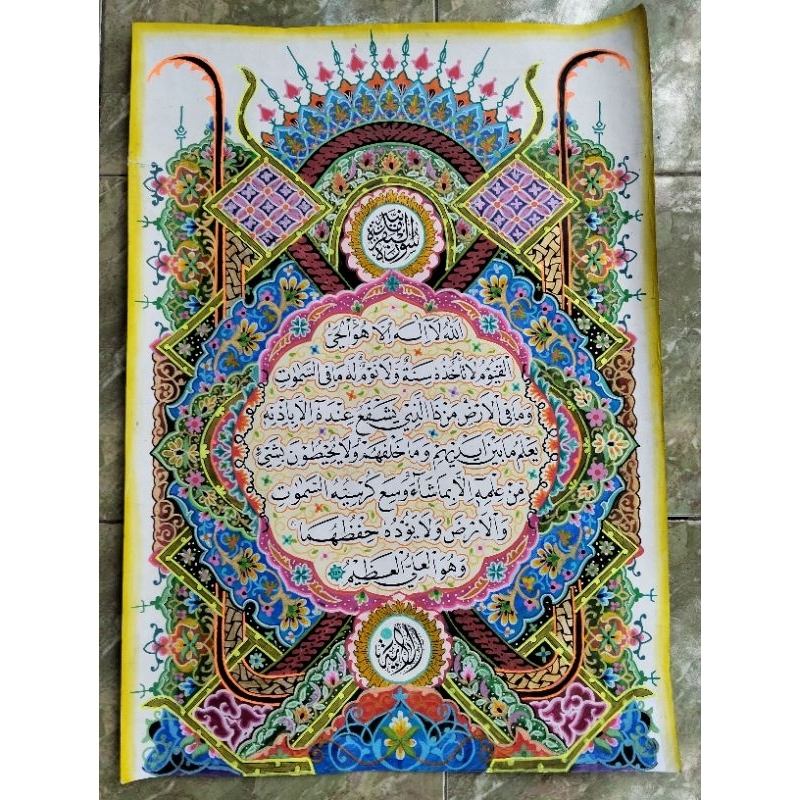 سورة البقرة
الله لا اله الا هو الحي
القيوم لا تأخذه سنة ولا نوم له ما في السموت
وما في الارض من ذا الذي يشفع عنده الا باذنه
يعلم ما بين ايديهم وما خلفهم ولا يحيطون بشيء
من علمه الا بما شاء وسع كرسيه السموت
والارض ولا يؤده حفظهما
وهو العلي العظيم
الاية